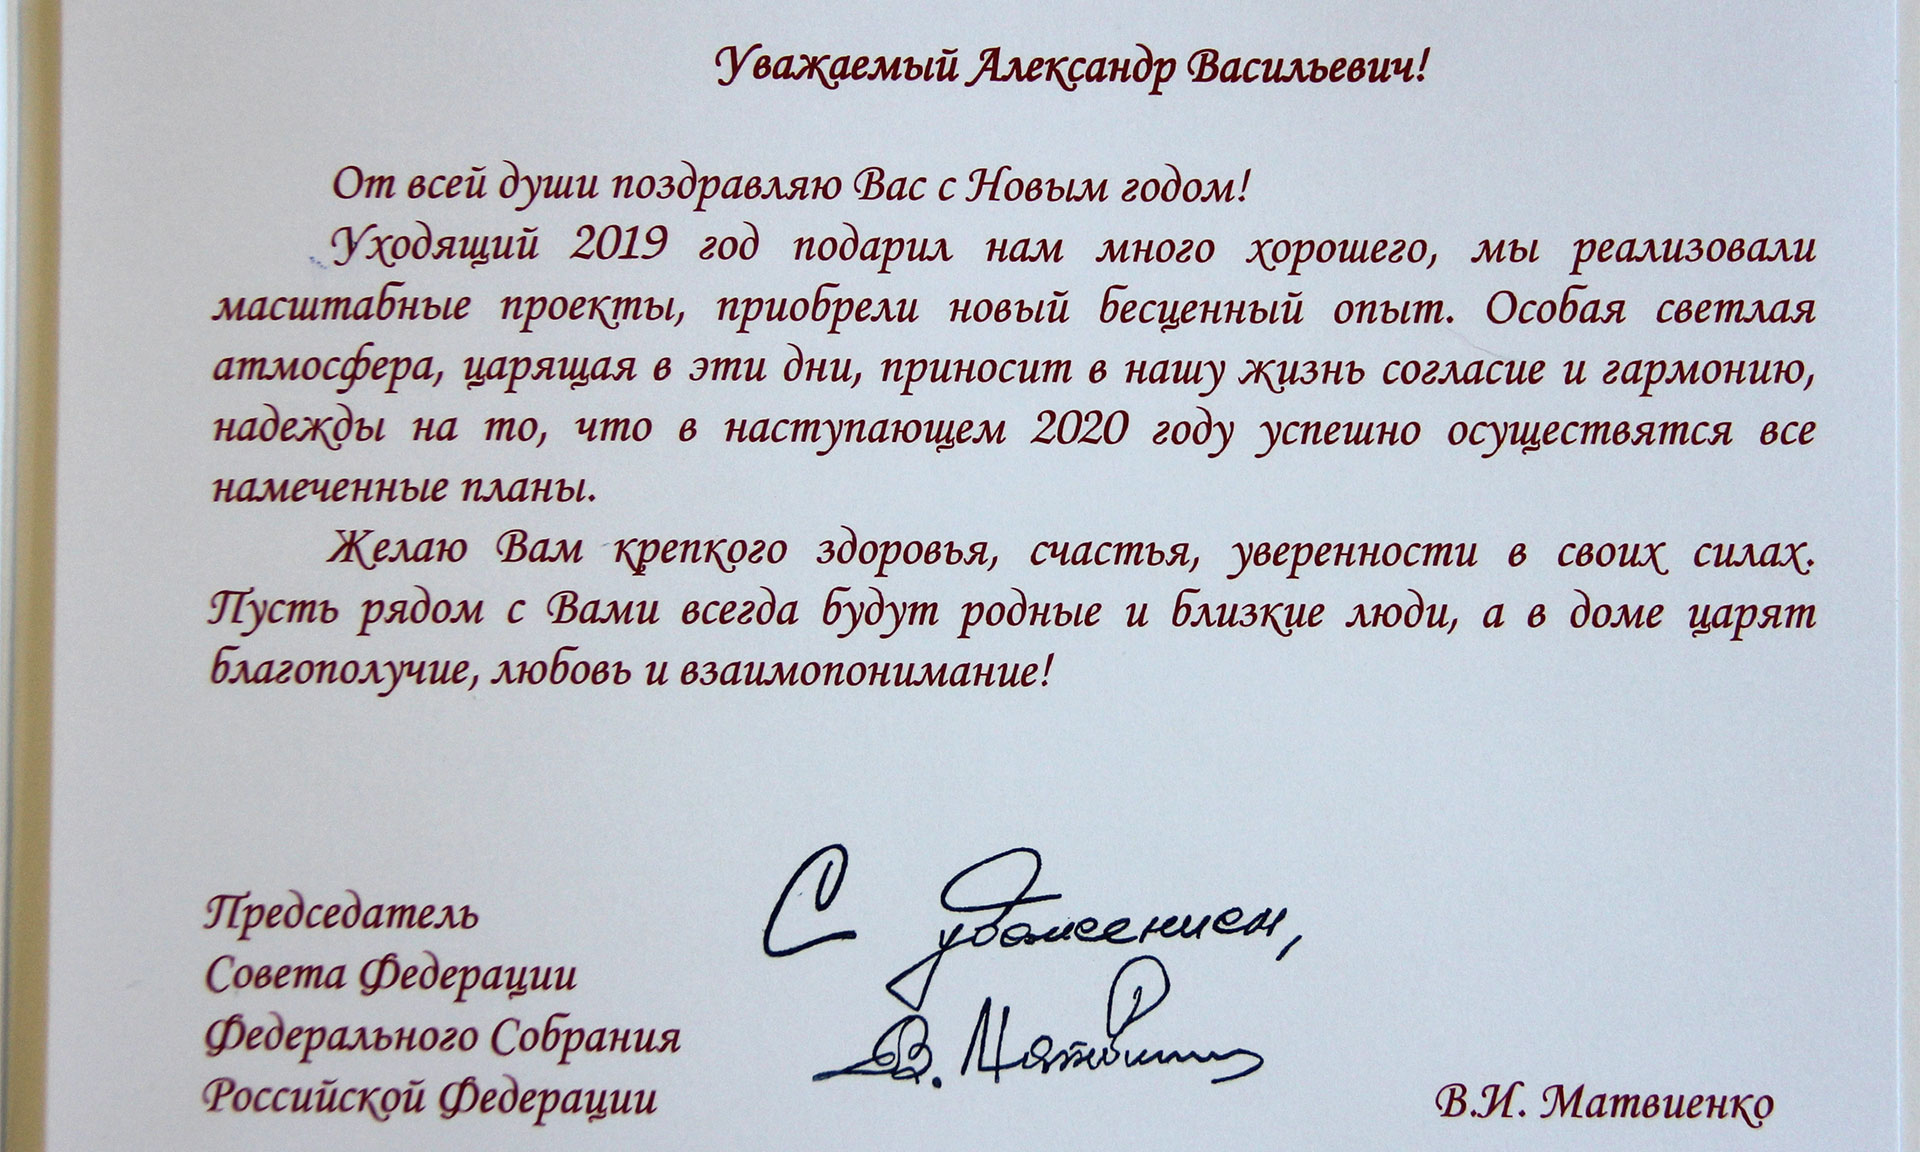 Уважаемый Александр Васильевич!
От всей души поздравляю Вас с Новым годом!
Уходящий 2019 год подарил нам много хорошего, мы реализовали
масштабные проекты, приобрели новый бесценный опыт. Особая светлая
атмосфера, царящая в эти дни, приносит в нашу жизнь согласие и гармонию,
надежды на то, что в наступающем 2020 году успешно осуществятся все
намеченные планы.
Желаю Вам крепкого здоровья, счастья, уверенности в своих силах.
Пусть рядом с Вами всегда будут родные и близкие люди, а в доме царят
благополучие, любовь и взаимопонимание!
С уважением,
В. Матвиенко
Председатель
Совета Федерации
Федерального Собрания
Российской Федерации
В.И. Матвиенко